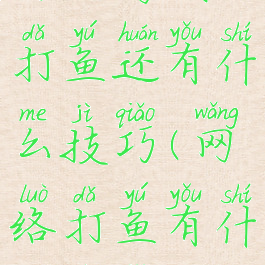 dǎ yú huán yǒu shí
打鱼还有什
me jì qiǎo wǎng
么技巧(网
luò dǎ yú yǒu shí
络打鱼有什